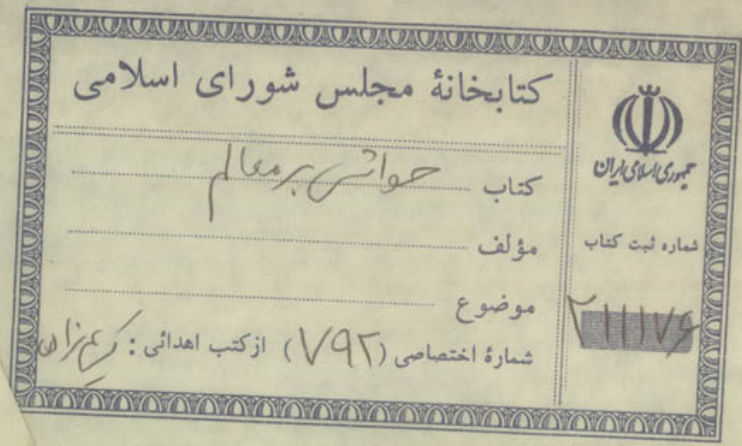 کتابخانهٔ مجلس شورای اسلامی
کتاب حواشی بر معالم
مؤلف
موضوع
شمارهٔ اختصاصی (۷۹۲) از کتب اهدائی:
جمهوری اسلامی ایران
شماره ثبت کتاب
۲۱۱۱۷۶